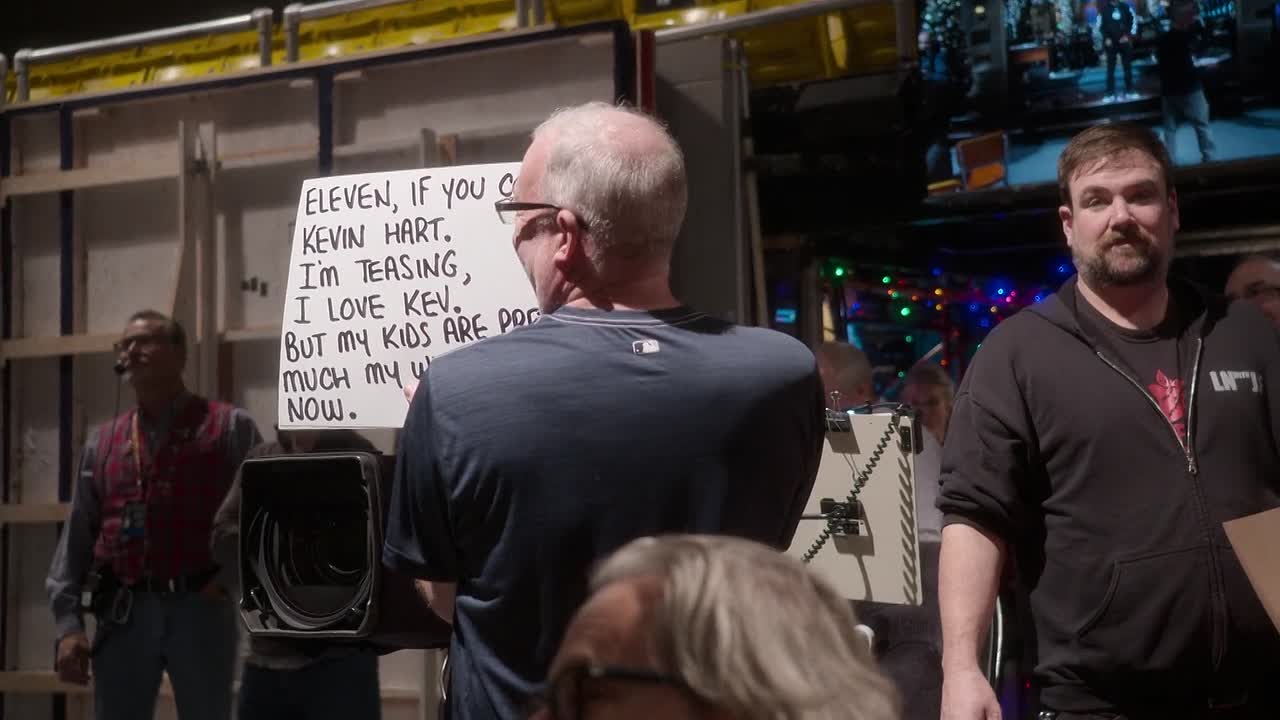 ELEVEN, IF YOU
KEVIN HART.
I'M TEASING,
I LOVE KEV.
BUT MY KIDS ARE
MUCH MY
NOW.